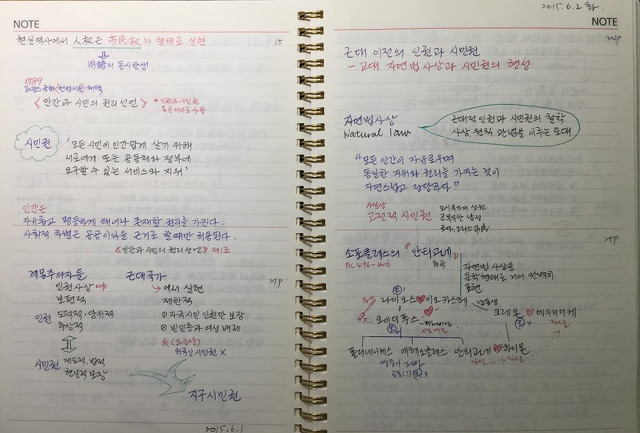 NOTE
현실역사에서 人权은 市民权의 형태로 실현
15
用語의 동시탄생
1789
프랑스 국회(헌법의회) 채택
《인간과 시민의 권리선언》
시민권
'모든 시민이 인간답게 살기 위해
서로에게 또는 공동체와 정부에
요구할 수 있는 서비스와 지위'
인간은
자유롭고 평등하게 태어나 존재할 권리를 가진다.
사회적 차별은 공공이익을 근거로 할때만 허용된다.
《인간과 시민의 권리선언》 제1조
계몽주의자들 근대국가
17p
인권 인권사상 → 에서 실현
보편적 제한적
도덕적·당위적 ① 자국시민 인권만 보장
추상적 ② 빈민층과 여성 배제
시민권 제도적, 법적
현실적 보장
외국인 시민권 X
지구시민권
2015.6.1
2015.6.2 화
NOTE
24p
근대 이전의 인권과 시민권
- 고대 자연법사상과 시민권의 형성
자연법사상
Natural law
근대적 인권과 시민권의 철학
사상 원칙 관념을 이루는 토대
"모든 인간이 자유로우며
동일한 지위와 권리를 가지는 것이
자연스럽고 정당하다"
고전적 시민권
25p
소포클레스의 『안티고네』
BC 496-406
자연법 사상을
문학형태로 가장 완벽히
표현
라이오스 ♥ 이오카스테
오이디푸스
크레온 ♥ 에우리디케
폴리네이케스 에테오클레스 안티고네 ♥ 하이몬